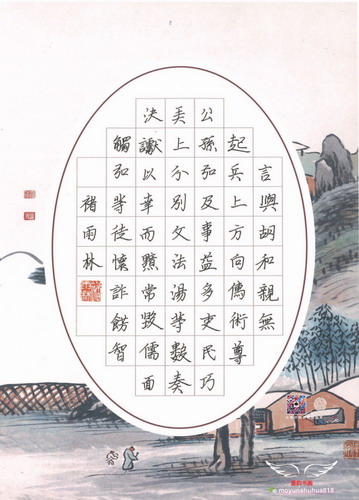 言與胡和親無
起兵上方向儒術尊
公孫弘及事益多吏民巧
弄上分別文法湯等數奏
決讞以幸而黯常毀儒面
觸弘等徒懷詐飾智
褚雨林
墨韵书画
moyunshuhua818